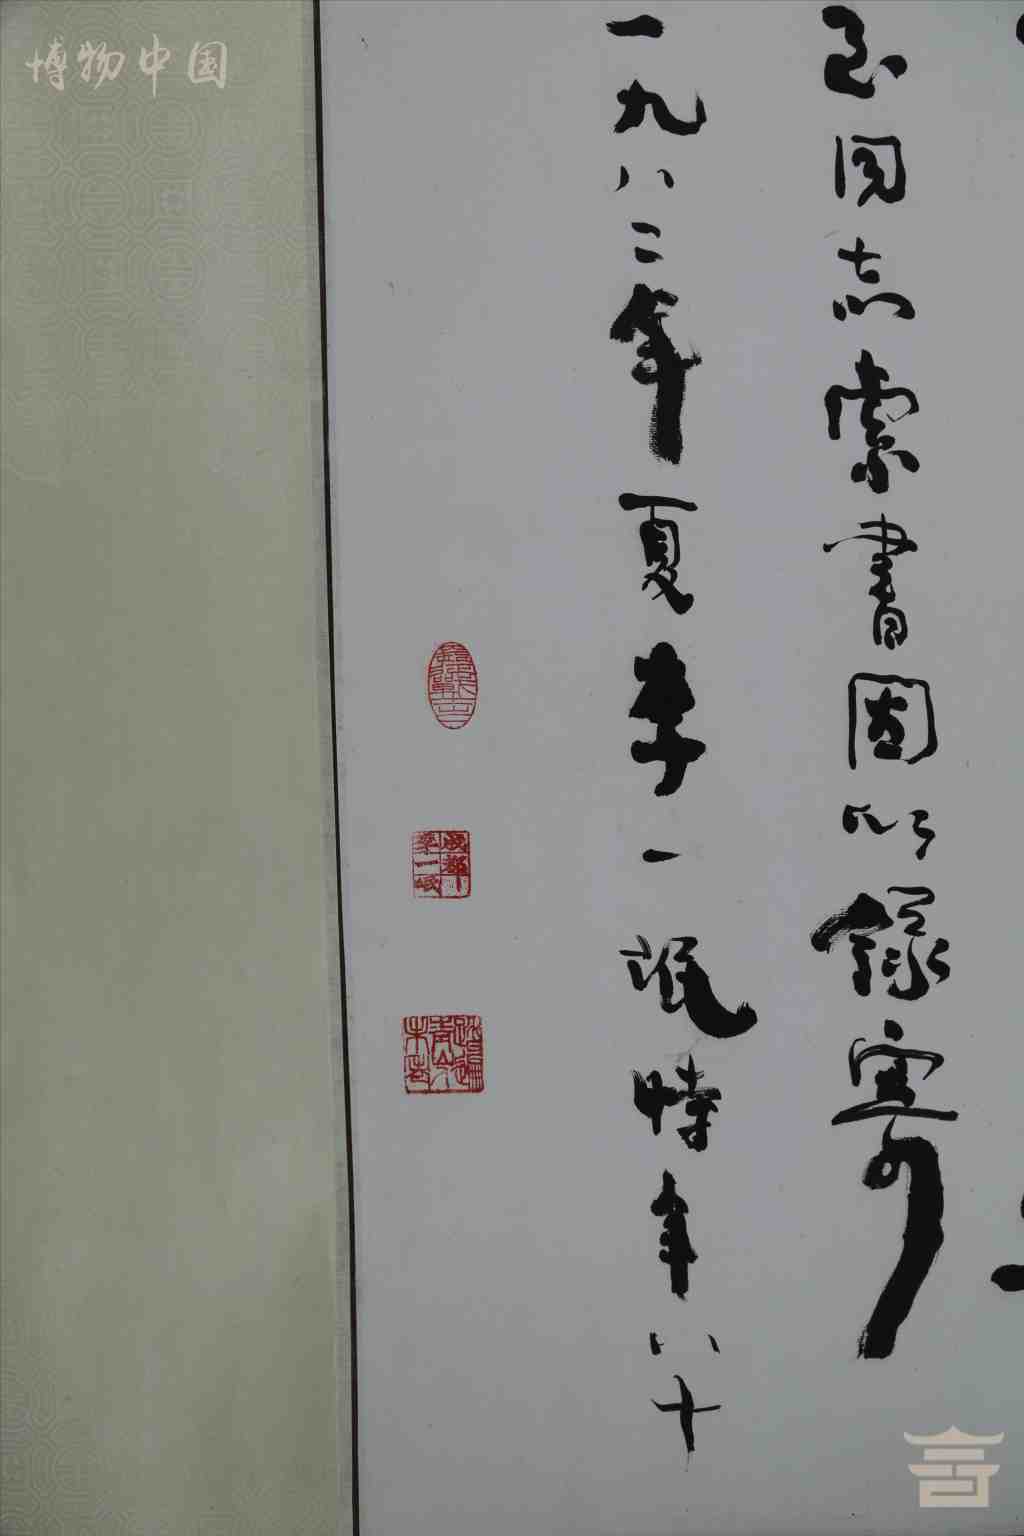 博物中国
同志索書因以錄寄
一九八二年夏李一氓時年八十
成都
李一氓